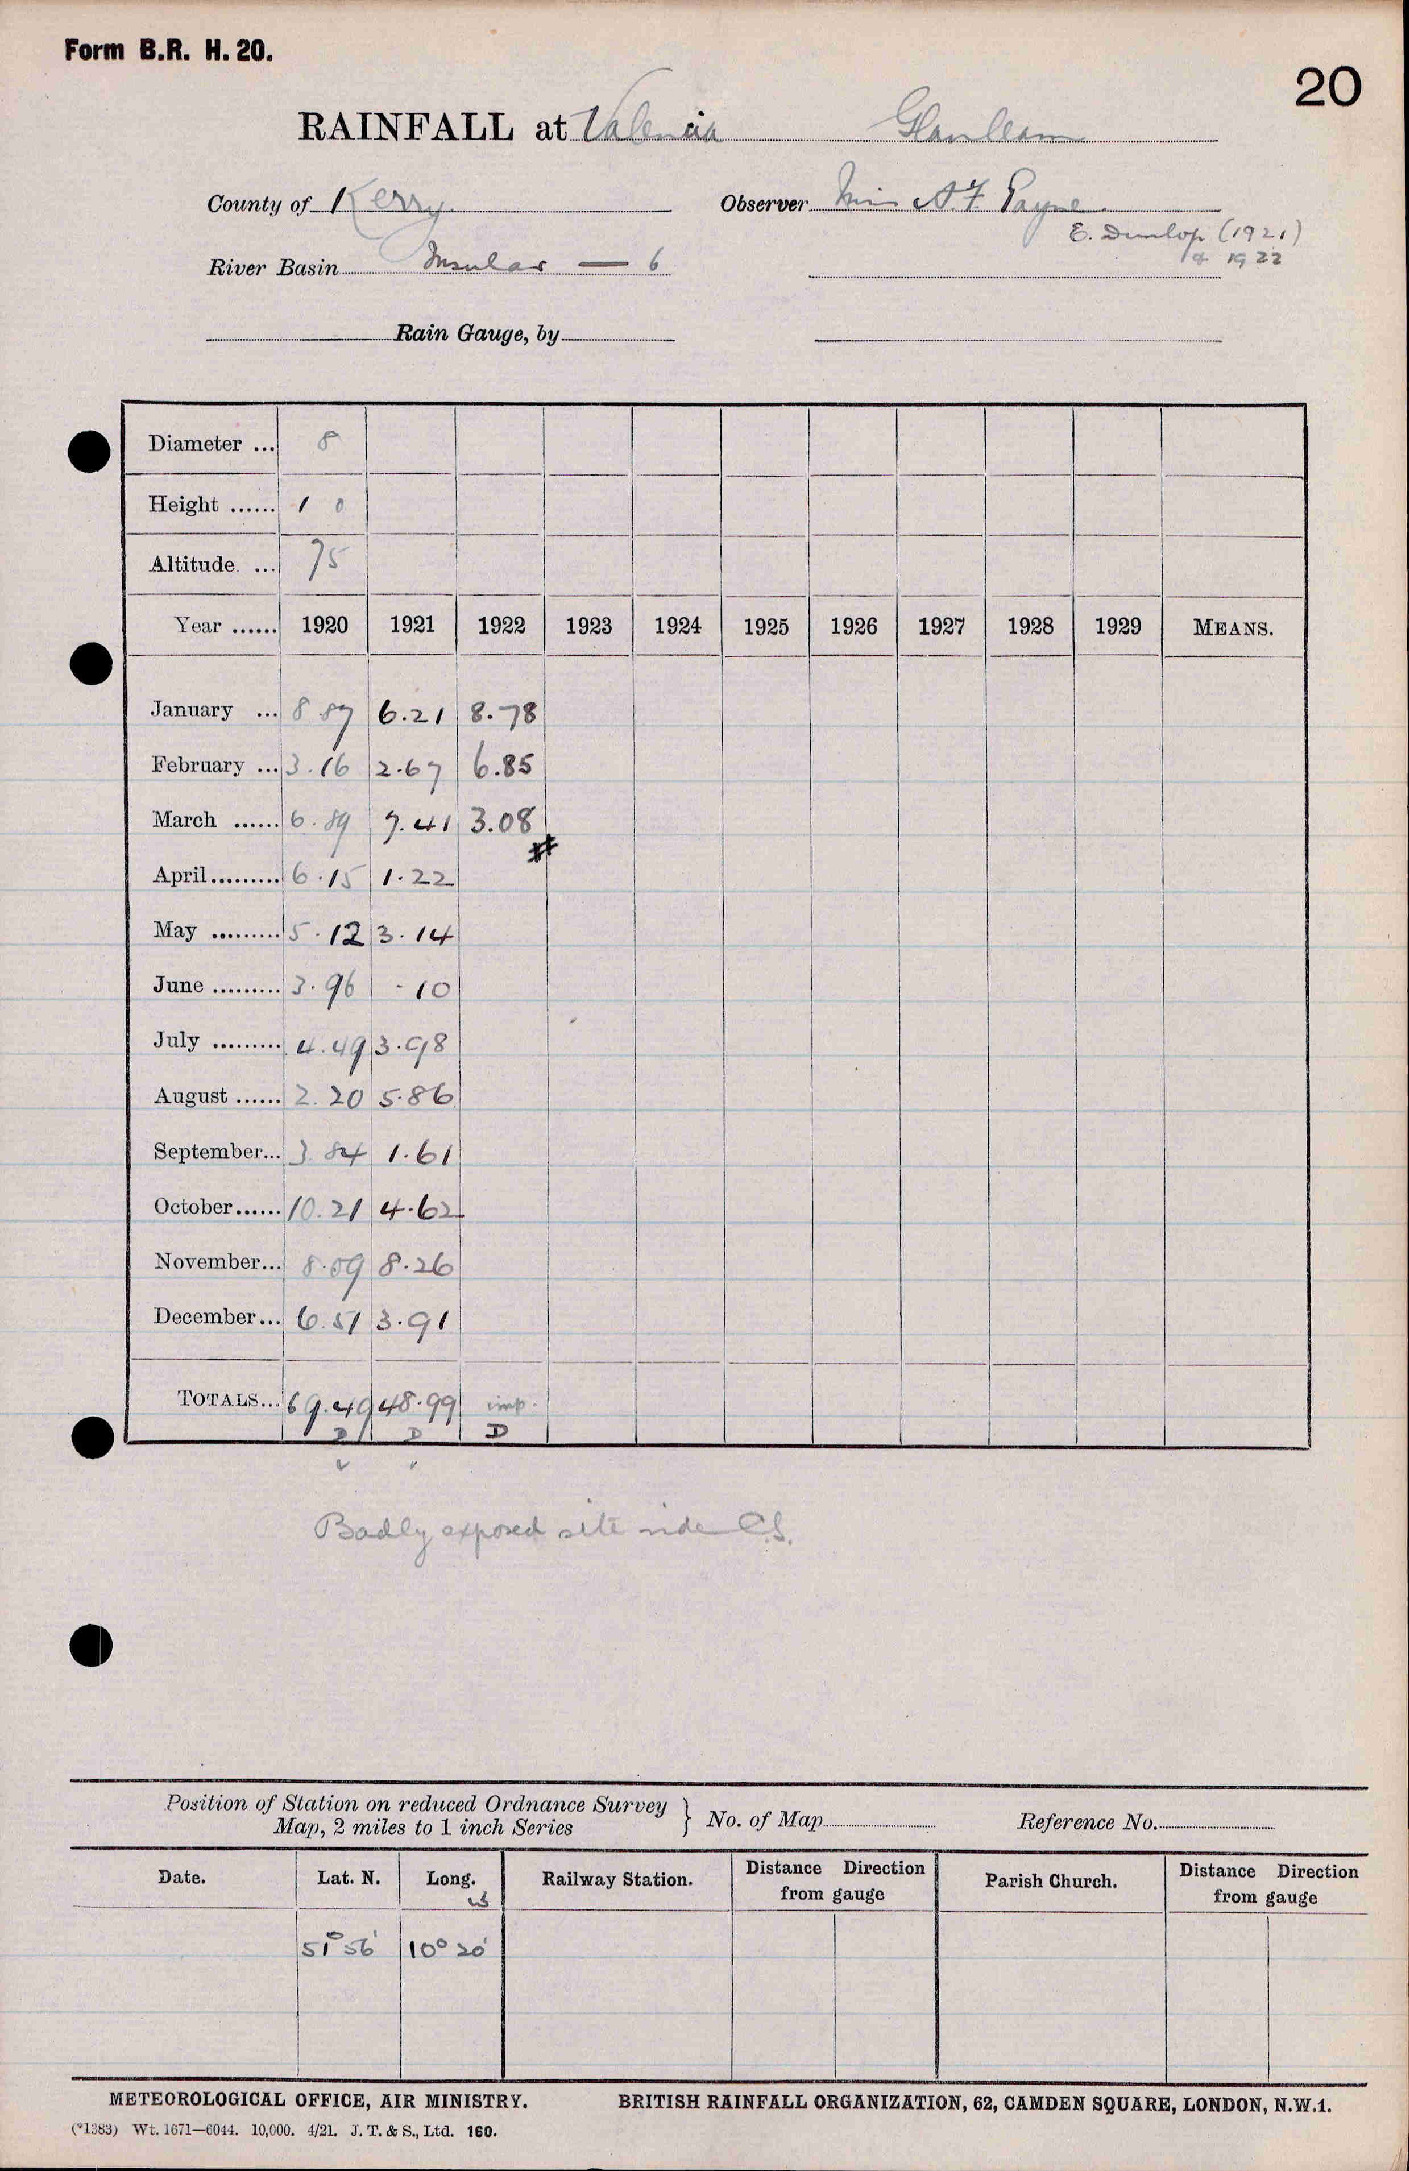 Form B.R. H. 20.
20
RAINFALL at Valencia Glanleam
County of Kerry. Observer Miss A.F. Payne
E. Dunlop (1921)
& 1922
River Basin Insular — 6
Rain Gauge, by
Diameter ... 8
Height ...... 1 0
Altitude. ... 75
Year ...... 1920 1921 1922 1923 1924 1925 1926 1927 1928 1929 MEANS.
January ... 8.87 6.21 8.78
February ... 3.16 2.67 6.85
March ...... 6.89 7.41 3.08
#
April......... 6.15 1.22
May ......... 5.12 3.14
June ......... 3.96 .10
July ......... 4.49 3.98
August ...... 2.20 5.86
September... 3.84 1.61
October...... 10.21 4.62
November... 8.09 8.26
December... 6.51 3.91
TOTALS... 69.49 48.99 imp.
D D D
Badly exposed site vide C.S.
Position of Station on reduced Ordnance Survey
Map, 2 miles to 1 inch Series } No. of Map Reference No.
Date. Lat. N. Long. W Railway Station. Distance Direction from gauge Parish Church. Distance Direction from gauge
51° 56' 10° 20'
METEOROLOGICAL OFFICE, AIR MINISTRY. BRITISH RAINFALL ORGANIZATION, 62, CAMDEN SQUARE, LONDON, N.W.1.
(*1383) Wt. 1671—6044. 10,000. 4/21. J. T. & S., Ltd. 160.